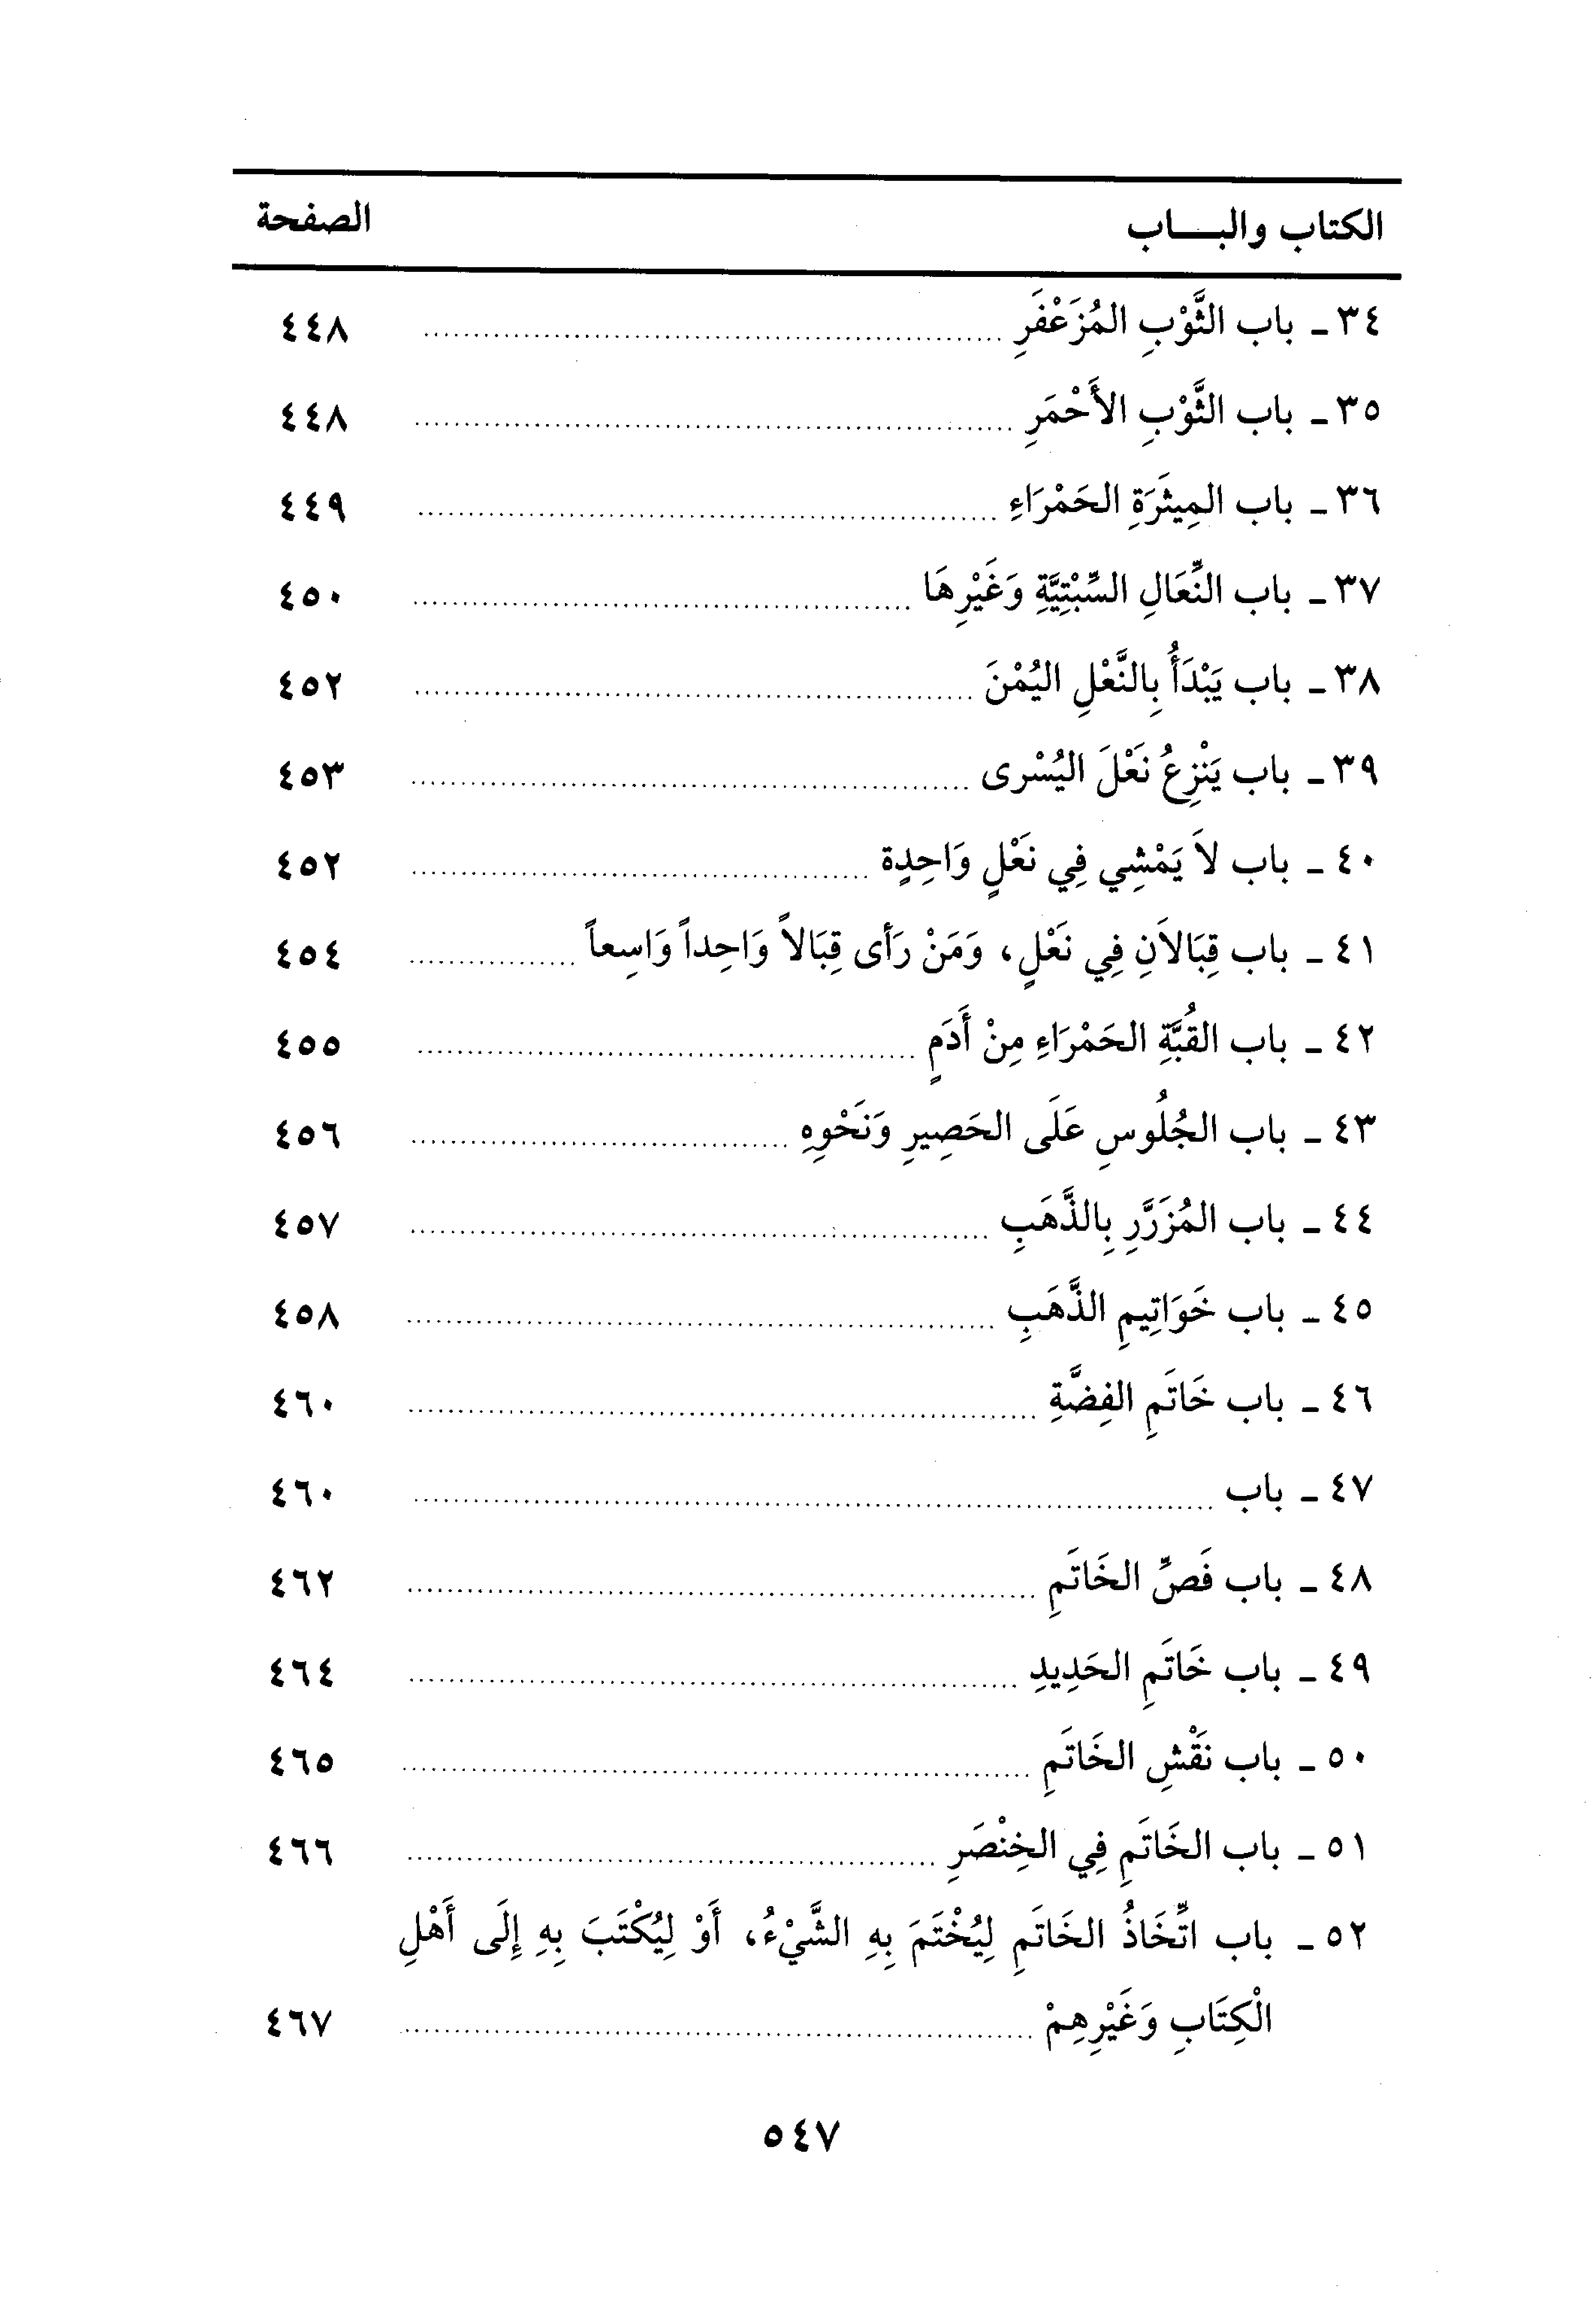 الكتاب والبـــاب الصفحة
٣٤ - باب الثَّوْبِ المُزَعْفَرِ ........ ٤٤٨
٣٥ - باب الثَّوْبِ الأَحْمَرِ ........ ٤٤٨
٣٦ - باب المِيثَرَةِ الحَمْرَاءِ ........ ٤٤٩
٣٧ - باب النِّعَالِ السِّبْتِيَّةِ وَغَيْرِهَا ........ ٤٥٠
٣٨ - باب يَبْدَأُ بِالنَّعْلِ اليُمْنَ ........ ٤٥٢
٣٩ - باب يَنْزِعُ نَعْلَ اليُسْرى ........ ٤٥٣
٤٠ - باب لاَ يَمْشِي فِي نَعْلٍ وَاحِدٍة ........ ٤٥٢
٤١ - باب قِبَالاَنِ فِي نَعْلٍ، وَمَنْ رَأى قِبَالاً وَاحِداً وَاسِعاً ........ ٤٥٤
٤٢ - باب القُبَّةِ الحَمْرَاءِ مِنْ أَدَمٍ ........ ٤٥٥
٤٣ - باب الجُلُوسِ عَلَى الحَصِيرِ وَنَحْوِهِ ........ ٤٥٦
٤٤ - باب المُزَرَّرِ بِالذَّهَبِ ........ ٤٥٧
٤٥ - باب خَوَاتِيمِ الذَّهَبِ ........ ٤٥٨
٤٦ - باب خَاتَمِ الفِضَّةِ ........ ٤٦٠
٤٧ - باب ........ ٤٦٠
٤٨ - باب فَصِّ الخَاتَمِ ........ ٤٦٢
٤٩ - باب خَاتَمِ الحَدِيدِ ........ ٤٦٤
٥٠ - باب نَقْشِ الخَاتَمِ ........ ٤٦٥
٥١ - باب الخَاتَمِ فِي الخِنْصَرِ ........ ٤٦٦
٥٢ - باب اتِّخَاذُ الخَاتَمِ لِيُخْتَمَ بِهِ الشَّيْءُ، أَوْ لِيُكْتَبَ بِهِ إِلَى أَهْلِ
الْكِتَابِ وَغَيْرِهِمْ ........ ٤٦٧
٥٤٧